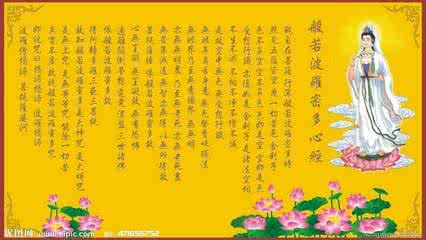 般若波羅密多心經
觀自在菩薩行深般若波羅密多時
照見五蘊皆空度一切苦厄舍利子
色不異空空不異色色即是空空即是色
受想行識亦復如是舍利子是諸法空相
不生不滅不垢不淨不增不減
是故空中無色無受想行識
無眼耳鼻舌身意無色聲香味觸法
無眼界乃至無意識界無無明
亦無無明盡乃至無老死亦無老死盡
無苦集滅道無智亦無得以無所得故
菩提薩埵依般若波羅密多故
心無罣礙無罣礙故無有恐怖
遠離顛倒夢想究竟涅盤三世諸佛
依般若波羅密多故
得阿耨多羅三藐三菩提
故知般若波羅密多是大神咒是大明咒
是無上咒是無等等咒能除一切苦
真實不虛故說般若波羅密多咒
即說咒曰揭諦揭諦波羅揭諦
波羅僧揭諦菩提薩婆訶
昵图网
www.nipic.com
47655752